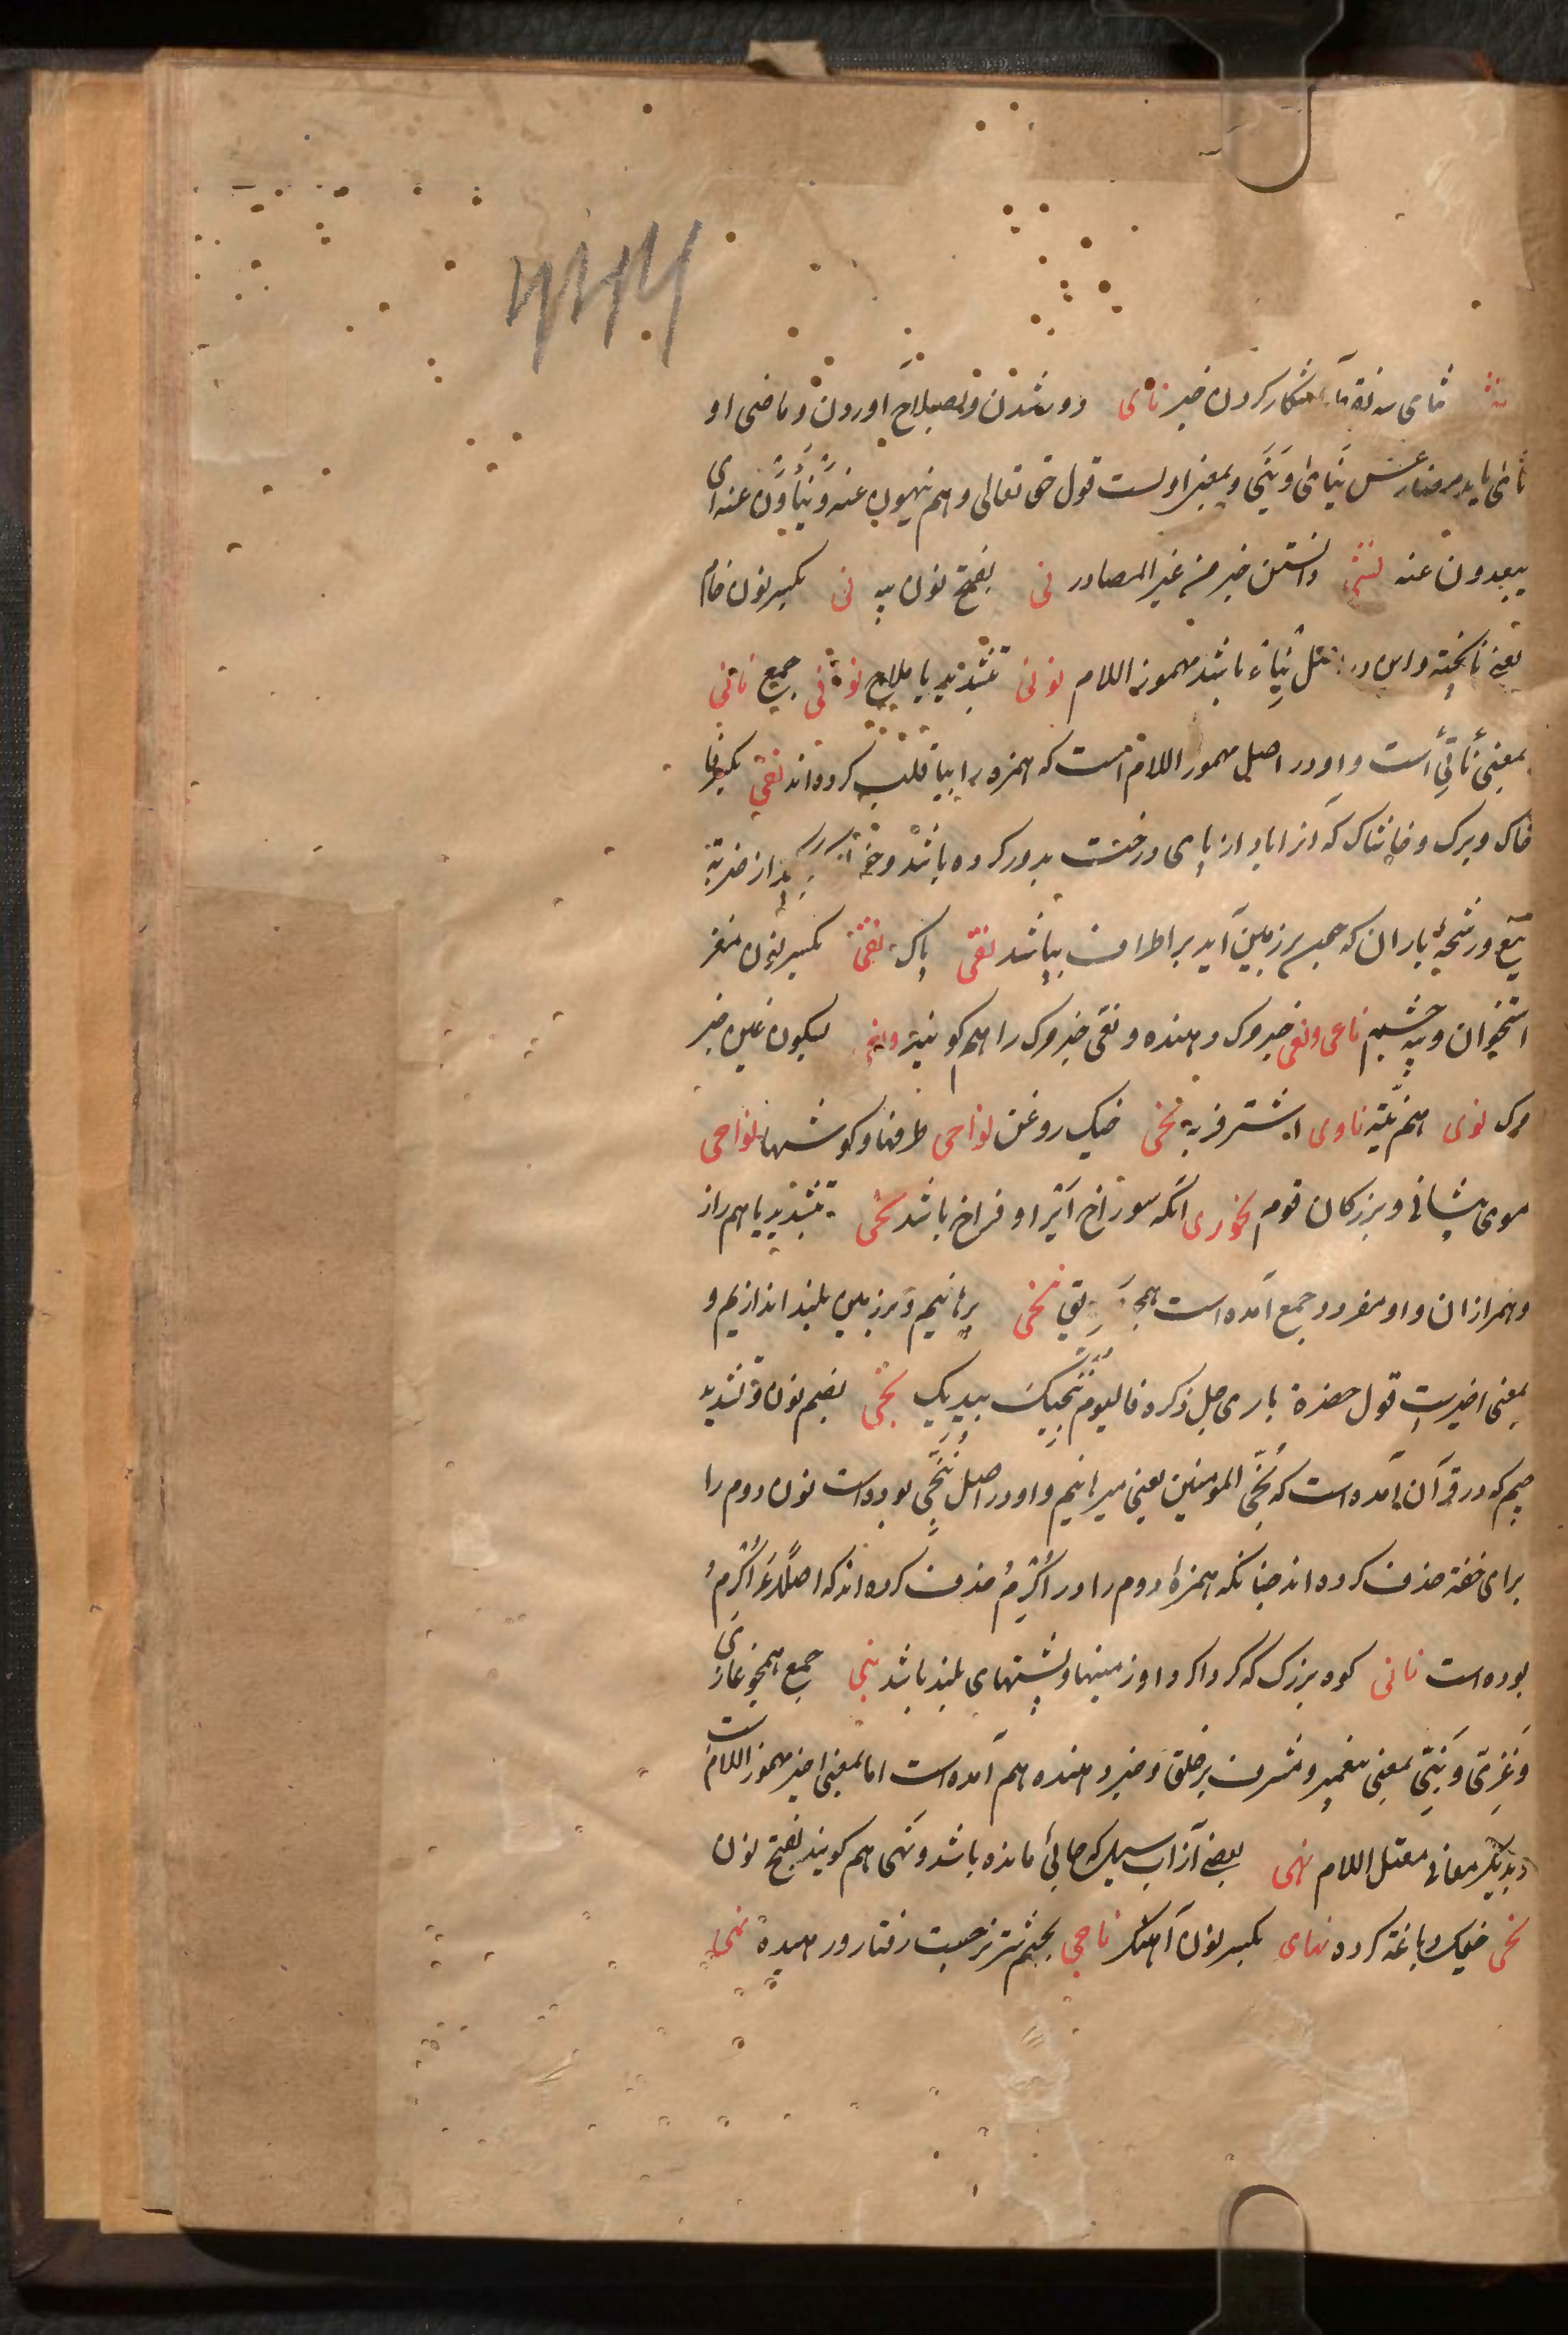 نث ثای سه نقطه آشکار کردن خبر نای دور شدن و بصلاح آوردن و ماضی او
نأی یابد مضارعش ینأی وینی و بمعنی اولست قول حق تعالی وهم ینهون عنه وینأون عنه ای
یبعدون عنه نشی دانستن خبر من غیر المصادر نی بفتح نون پیه نی بکسر نون خام
یعنی ناپخته و این در مثل نیاء باشد مهموز اللام نوتی بتشدید یا ملاح نواتی جمع ناتی
بمعنی ناتئ است و او در اصل مهموز اللام است که همزه را بیا قلب کرده‌اند نفی بکسر فا
خاک و برک و خاشاک که آنرا باد از پای درخت بدور کرده باشد از ضربة
تیغ و رشحهٔ باران که چون بر زمین آید بر اطراف بپاشد نقی پاک نقی بکسر نون مغز
استخوان و پیه چشم ناعی و نعی خبر مرک دهنده و نعی خبر مرک را هم کویند بسکون عین خبر
مرک نوی هم نیته ناوی اشتر فربه نحی خیک روغن نواحی طرفها و کوشها نواصی
موی پیشانی و بزرکان قوم نخوری انکه سوراخ آنرا او فراخ باشد نجی بتشدید یا هم راز
و همرازان و او مفرد و جمع آمده است ننجی برهانیم و بر زمین بلند اندازیم و
بمعنی اخیرست قول حضرة باری جل ذکره فالیوم ننجیک ببدنک نجی بضم نون و تشدید
جیم که در قرآن آمده است که نجی المومنین یعنی میرهانیم و او در اصل ننجی بوده است نون دوم را
برای خفة حذف کرده‌اند چنانکه همزهٔ دوم را در اکرم حذف کرده‌اند که اصلا أاکرم
بوده است نابی کوه بزرک که کرداکرد او زمینها و پشتهای بلند باشد نبی جمع همچو غازی
و غزی و نبی بمعنی پیغمبر و مشرف بر خلق و خبر دهنده هم آمده است اما بمعنی اخیر مهموز اللامست
و بدیکر معانی معتل اللام نهی بعضی از آب سیل که جائی مانده باشد و نهی هم کویند بفتح نون
نحی خیک دباغة کرده نهای بکسر نون آهنک ناجی بجیم شتر چست رفتار و رهیده نهی